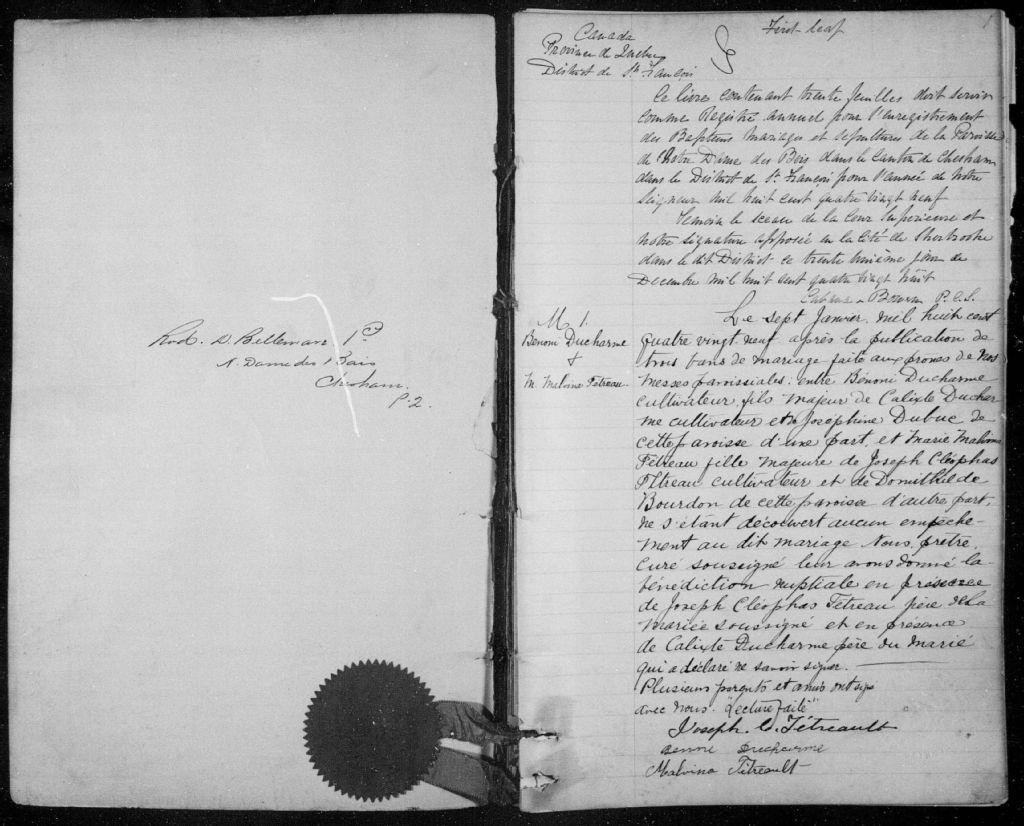 Rvd. D. Bellemare Pc
N. Dame des Bois
Chesham.
P. 2.
First leaf
1
Canada
Province de Quebec
District de St. François
Ce livre contenant trente feuilles doit servir
comme Registre annuel pour l'enregistrement
des Baptêmes Mariages et sepultures de la Paroisse
de Notre Dame des Bois dans le Canton de Chesham
dans le District de St. François pour l'année de Notre
Seigneur mil huit cent quatre vingt neuf
Temoin le sceau de la Cour Superieure et
notre signature apposée en la Cité de Sherbrooke
dans le dit District ce trente unième jour de
Decembre mil huit cent quatre vingt huit
P.C.S.
M 1.
Bénoni Ducharme
&
M. Malvina Tétreau
Le sept Janvier mil huit cent
quatre vingt neuf après la publication de
trois bans de mariage faite aux prones de nos
messes paroissiales: entre Bénoni Ducharme
cultivateur, fils majeur de Calixte Duchar
me cultivateur et de Joséphine Dubuc de
cette paroisse d'une part, et Marie Malvina
Tétreau fille majeure de Joseph Cléophas
Tétreau cultivateur et de Domithilde
Bourdon de cette paroisse d'autre part,
ne s'étant découvert aucun empêche-
ment au dit mariage Nous, prêtre,
curé soussigné leur avons donné la
bénédiction nuptiale en présence
de Joseph Cléophas Tétreau père de la
mariée soussigné et en présence
de Calixte Ducharme père du marié
qui a déclaré ne savoir signer.
Plusieurs parents et amis ont signé
avec nous. "Lecture faite"
Joseph. C. Tétreault
Benoni Ducharme
Malvina Tétreault